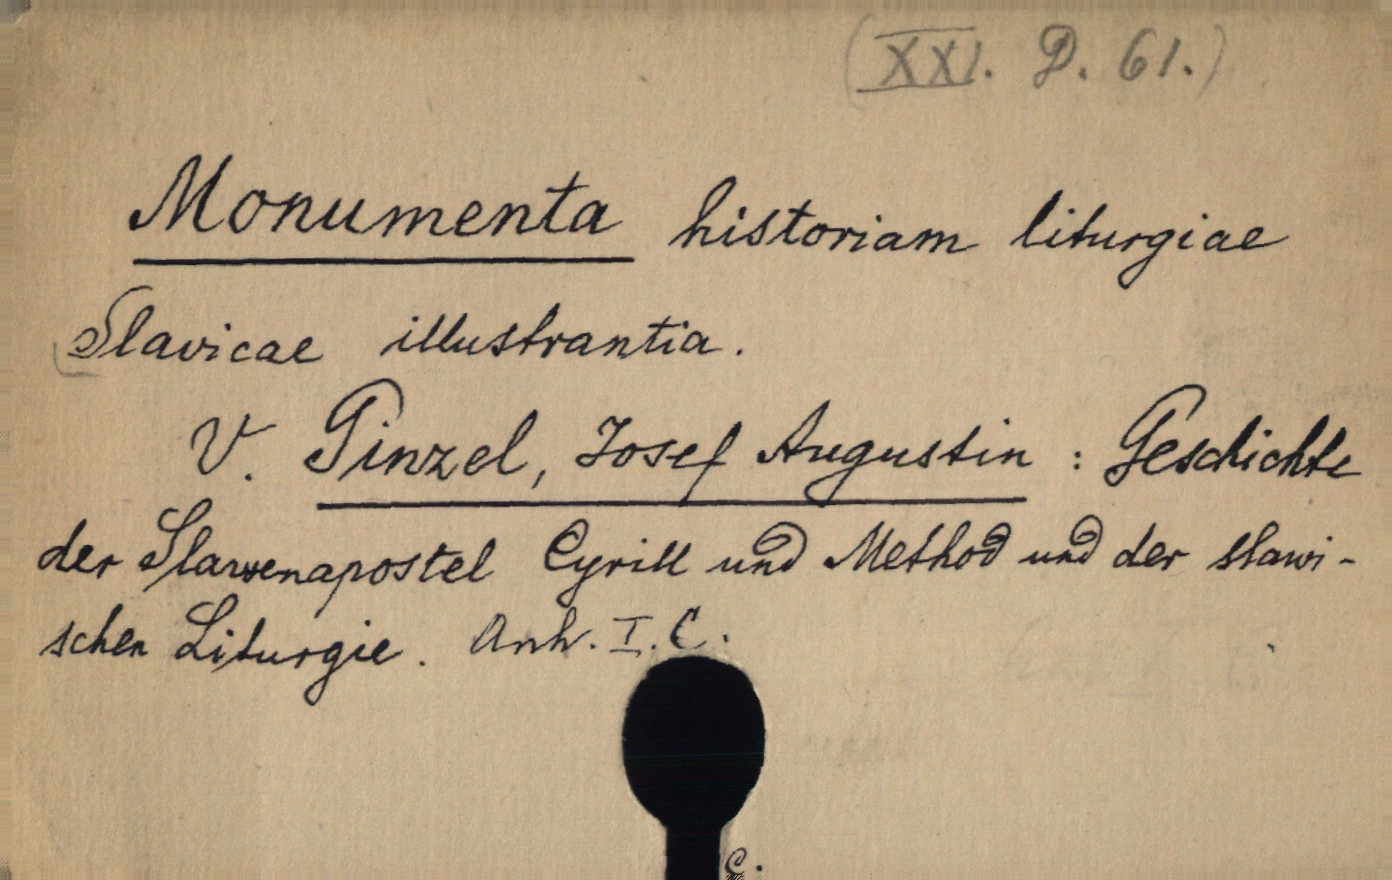 (XXI. D. 61.)
Monumenta historiam liturgiae
Slavicae illustrantia.
V. Ginzel, Josef Augustin : Geschichte
der Slawenapostel Cyrill und Method und der slawi-
schen Liturgie. Anh. I. C.
C.